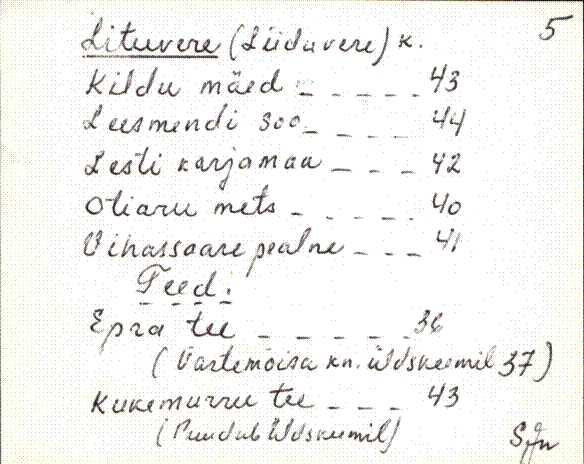 5
Lituvere (Liiduvere) k.
Kildu mäed _ _ _ _ _ 43
Leesmendi soo _ _ _ _ 44
Lesti karjamaa _ _ _ 42
Otiaru mets _ _ _ _ _ 40
Vihassaare pealne _ _ _ 41
Teed:
Epra tee _ _ _ _ _ 36
(Vastemõisa kn. üldskeemil 37)
Kukemurru tee _ _ _ 43
(Puudub üldskeemil)